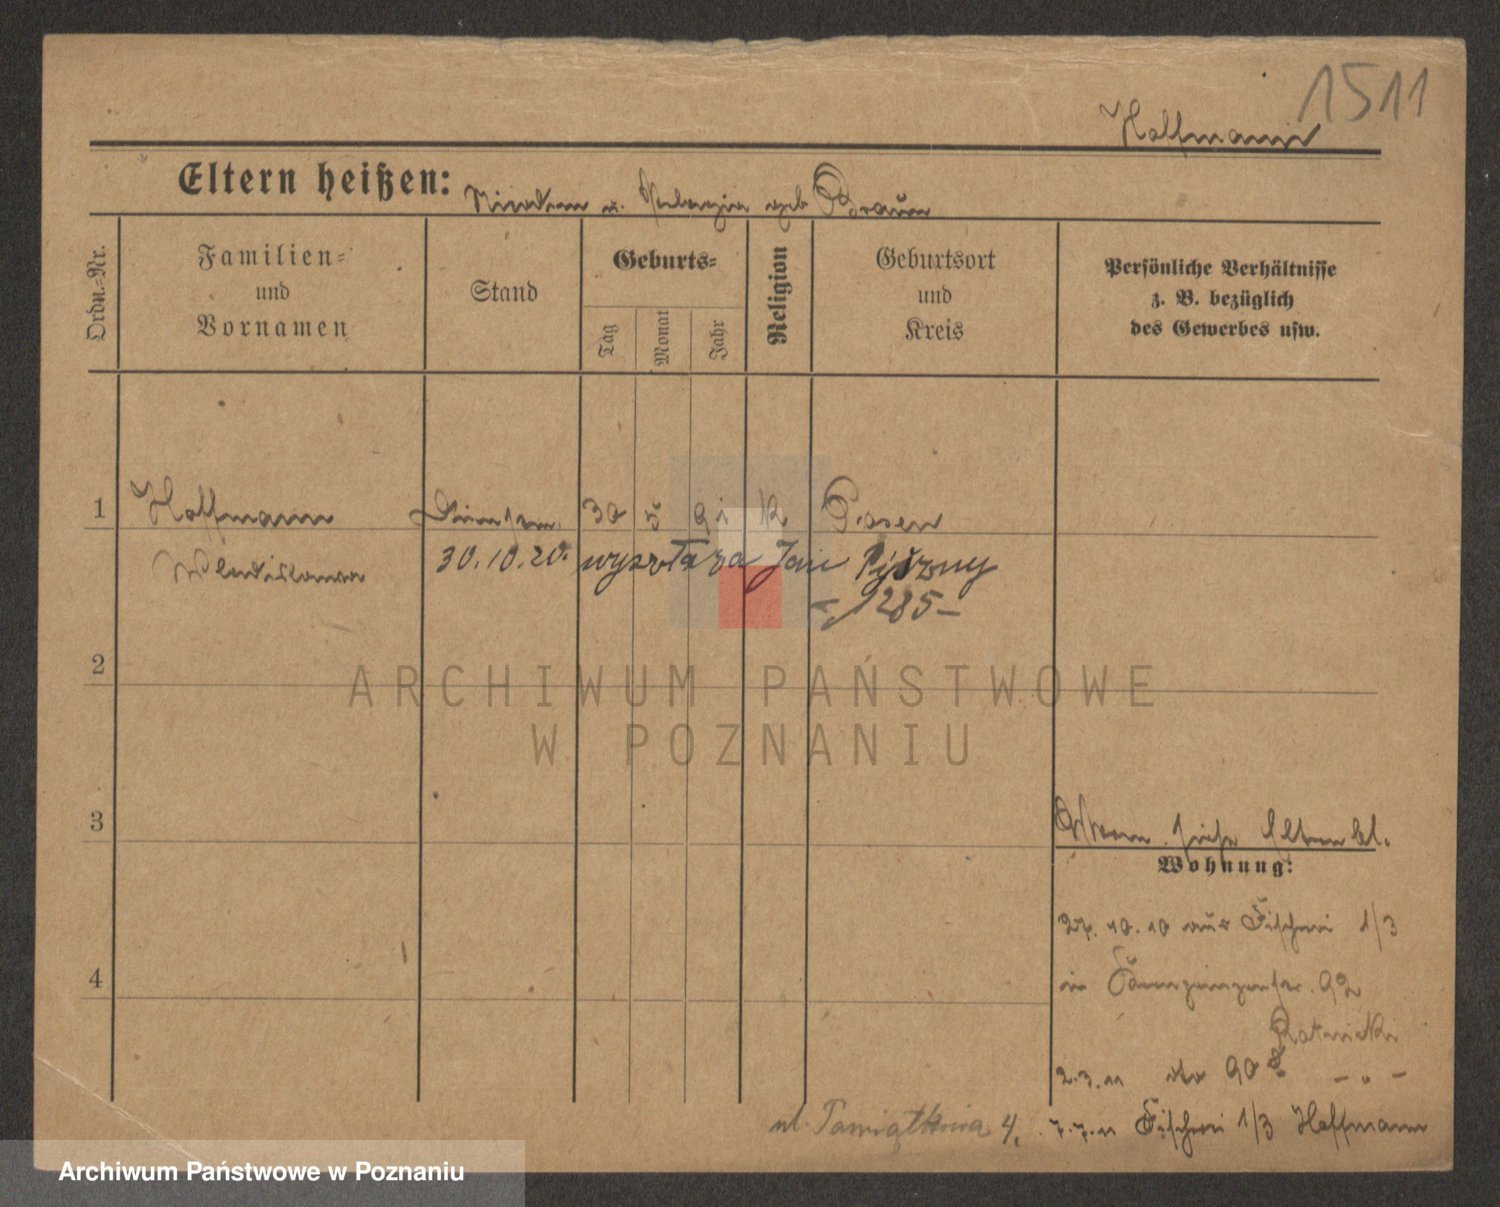 1511
Hoffmann
Eltern heißen: u. geb Braun
Ordn.-Nr.
Familien-
und
Vornamen
Stand
Geburts-
Tag
Monat
Jahr
Religion
Geburtsort
und
Kreis
Persönliche Verhältnisse
z. B. bezüglich
des Gewerbes usw.
1 Hoffmann 30 5 91 K Posen
Wladislawa
30.10.20. wyszła za Jana Pyszny
- 1285 -
2
ARCHIWUM PAŃSTWOWE
W POZNANIU
3
siehe Elternbl.
Wohnung:
27.10.10 aus Fischerei 1/3
in 92
Ratnicki
2.3.11 90 - " -
ul. Pamiątkowa 4.
7.7.11 Fischerei 1/3 Hoffmann
4
Archiwum Państwowe w Poznaniu